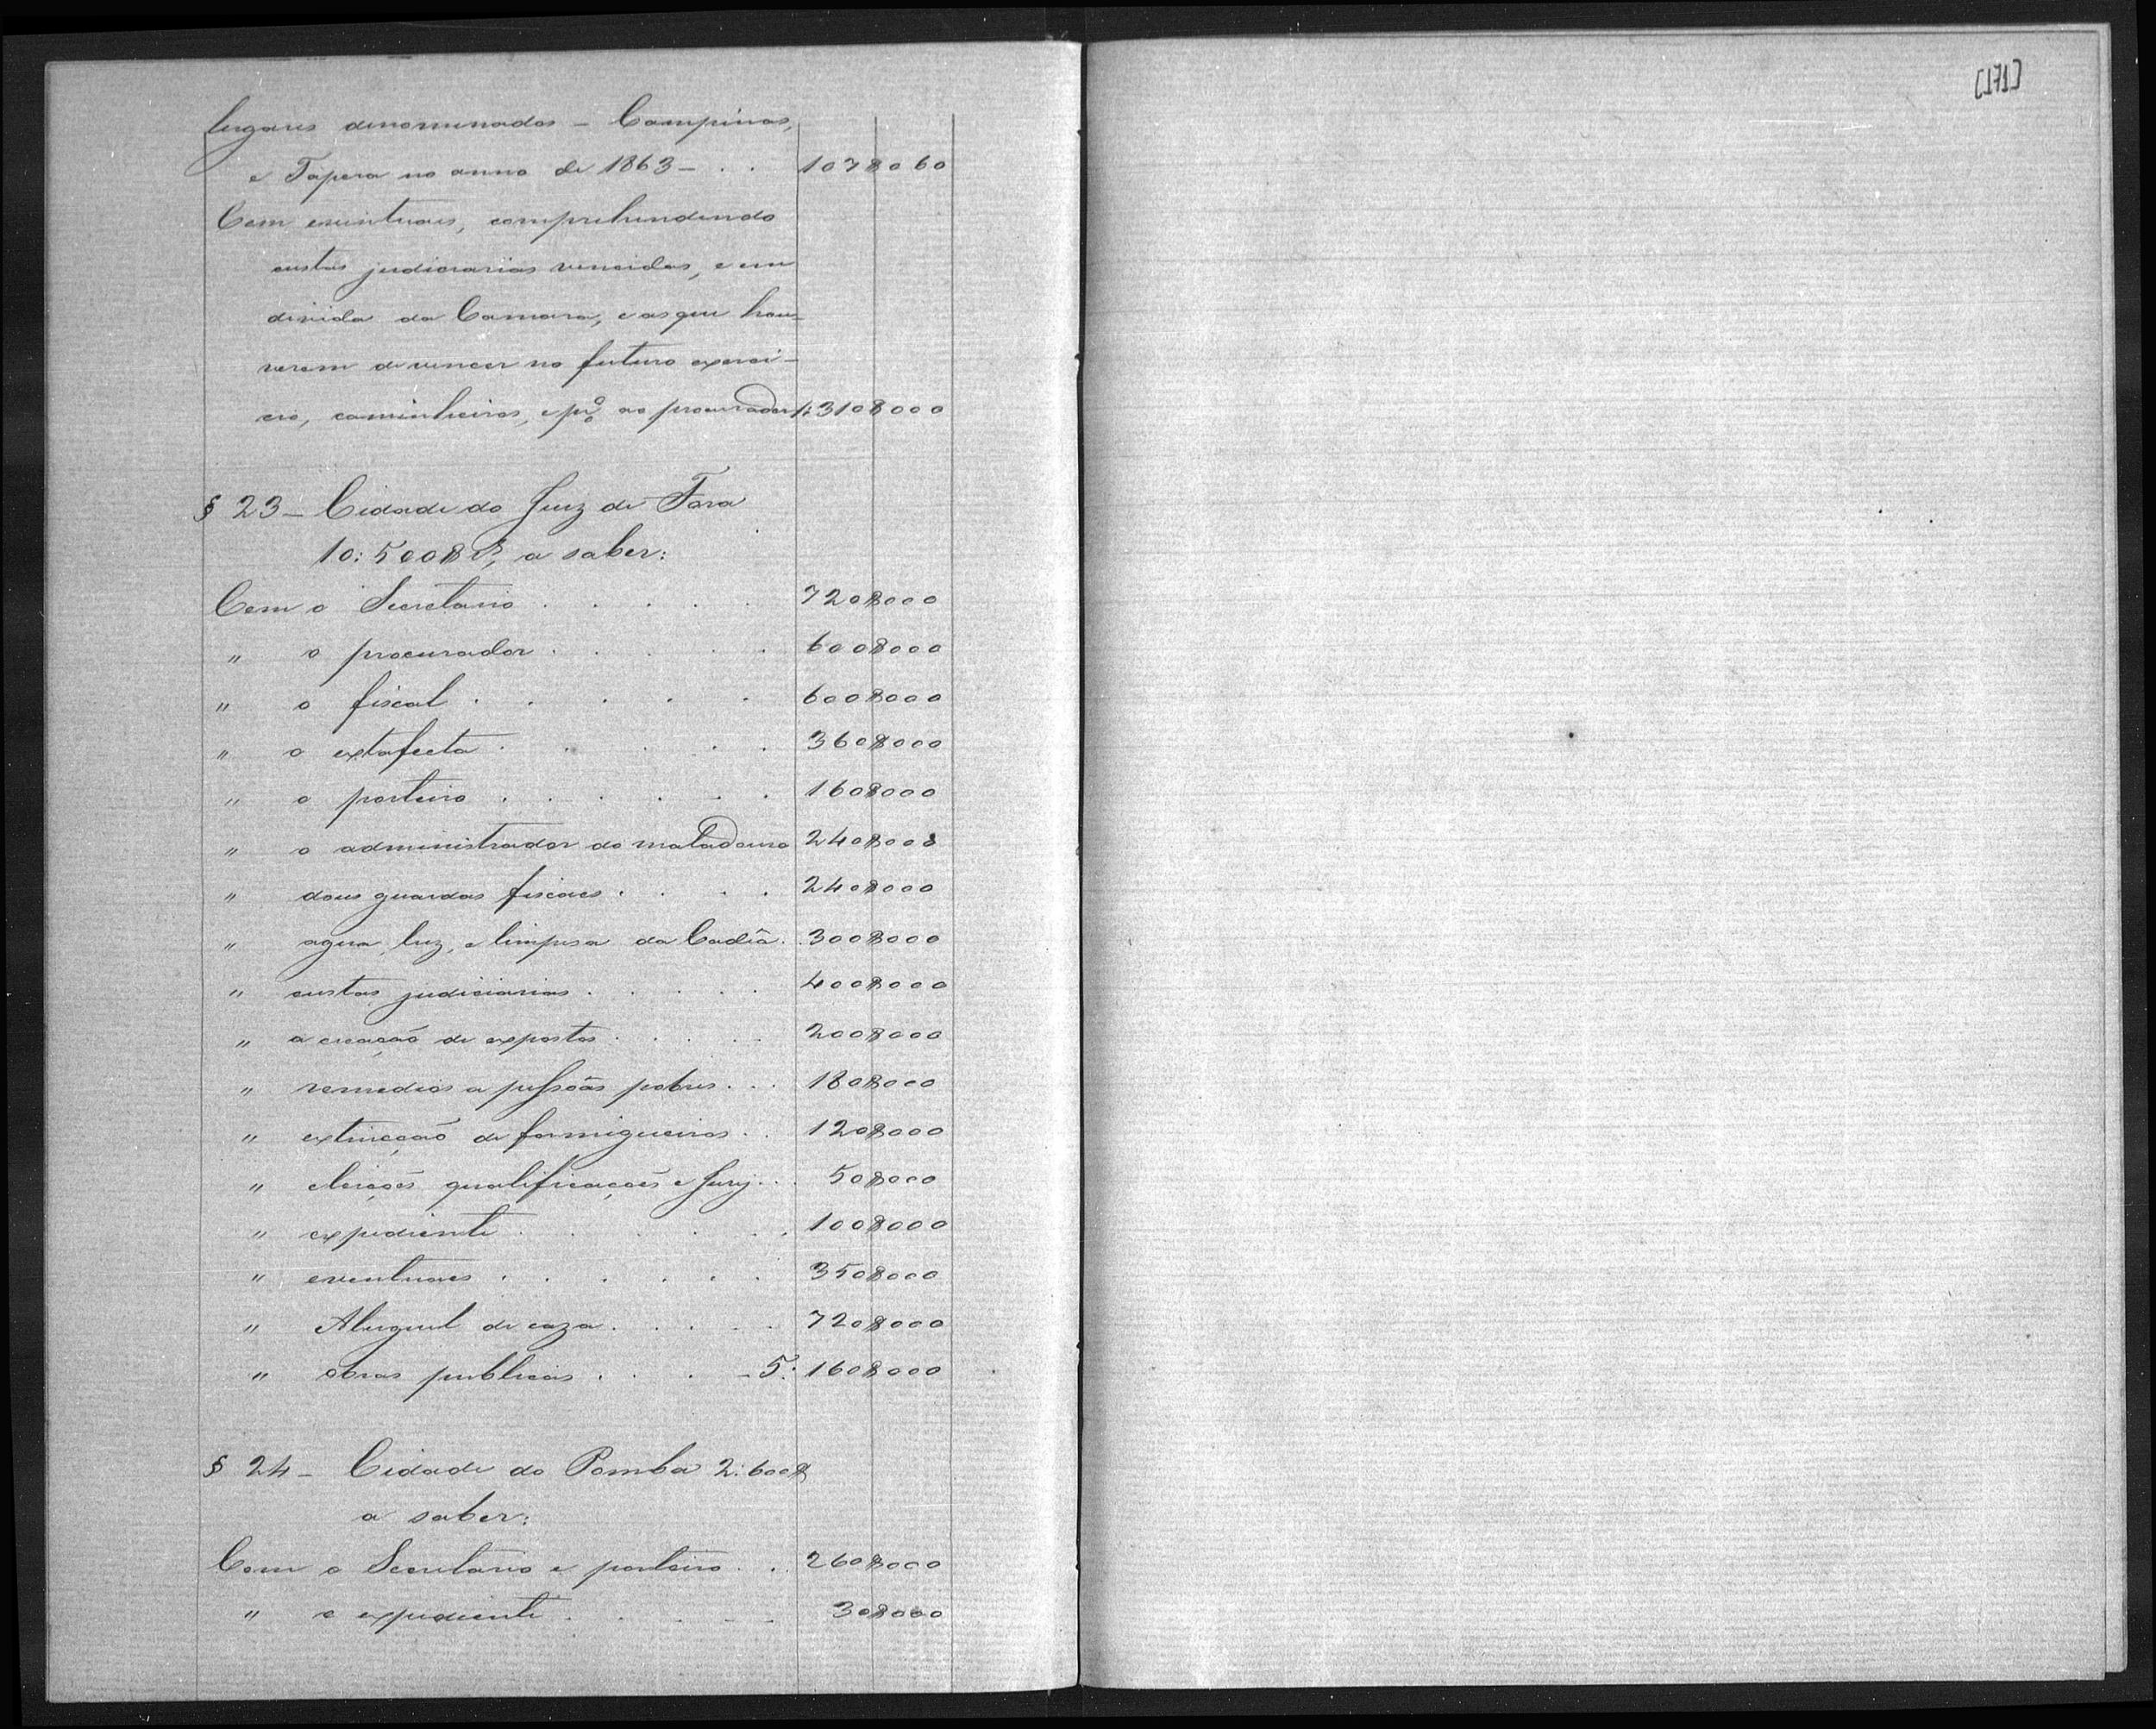 lugares denominados – Campinas,
e Tapera no anno de 1863 – . . 107$060
Com eventuaes, comprehendendo
custas judiciarias vencidas, e em
divida da Camara, e as que hou-
verem de vencer no futuro exerci-
cio, caminheiros, e p.º ao procurador 1:310$000
§ 23 – Cidade do Juiz de Fora
10:500$ rs, a saber:
Com o Secretario . . . . . 720$000
" o procurador . . . . . 600$000
" o fiscal . . . . . 600$000
" o extafecta . . . . . 360$000
" o porteiro . . . . . . 160$000
" o administrador do matadouro 240$000
" dous guardas fiscaes . . . . 240$000
" agua, luz, e limpesa da Cadêa . . 300$000
" custas judiciarias . . . . . 400$000
" a creação de expostos . . . . 200$000
" remedios a pessôas pobres . . . 180$000
" extincção de formigueiros . . 120$000
" eleições qualificações e Jury . . . 50$000
" expediente . . . . . . 100$000
" eventuaes . . . . . . 350$000
" Aluguel de caza . . . . . 720$000
" obras publicas . . . – 5:160$000
§ 24 – Cidade do Pomba 2:600$
a saber:
Com o Secretario e porteiro . . 260$000
" o expediente . . . . . 30$000
[171]